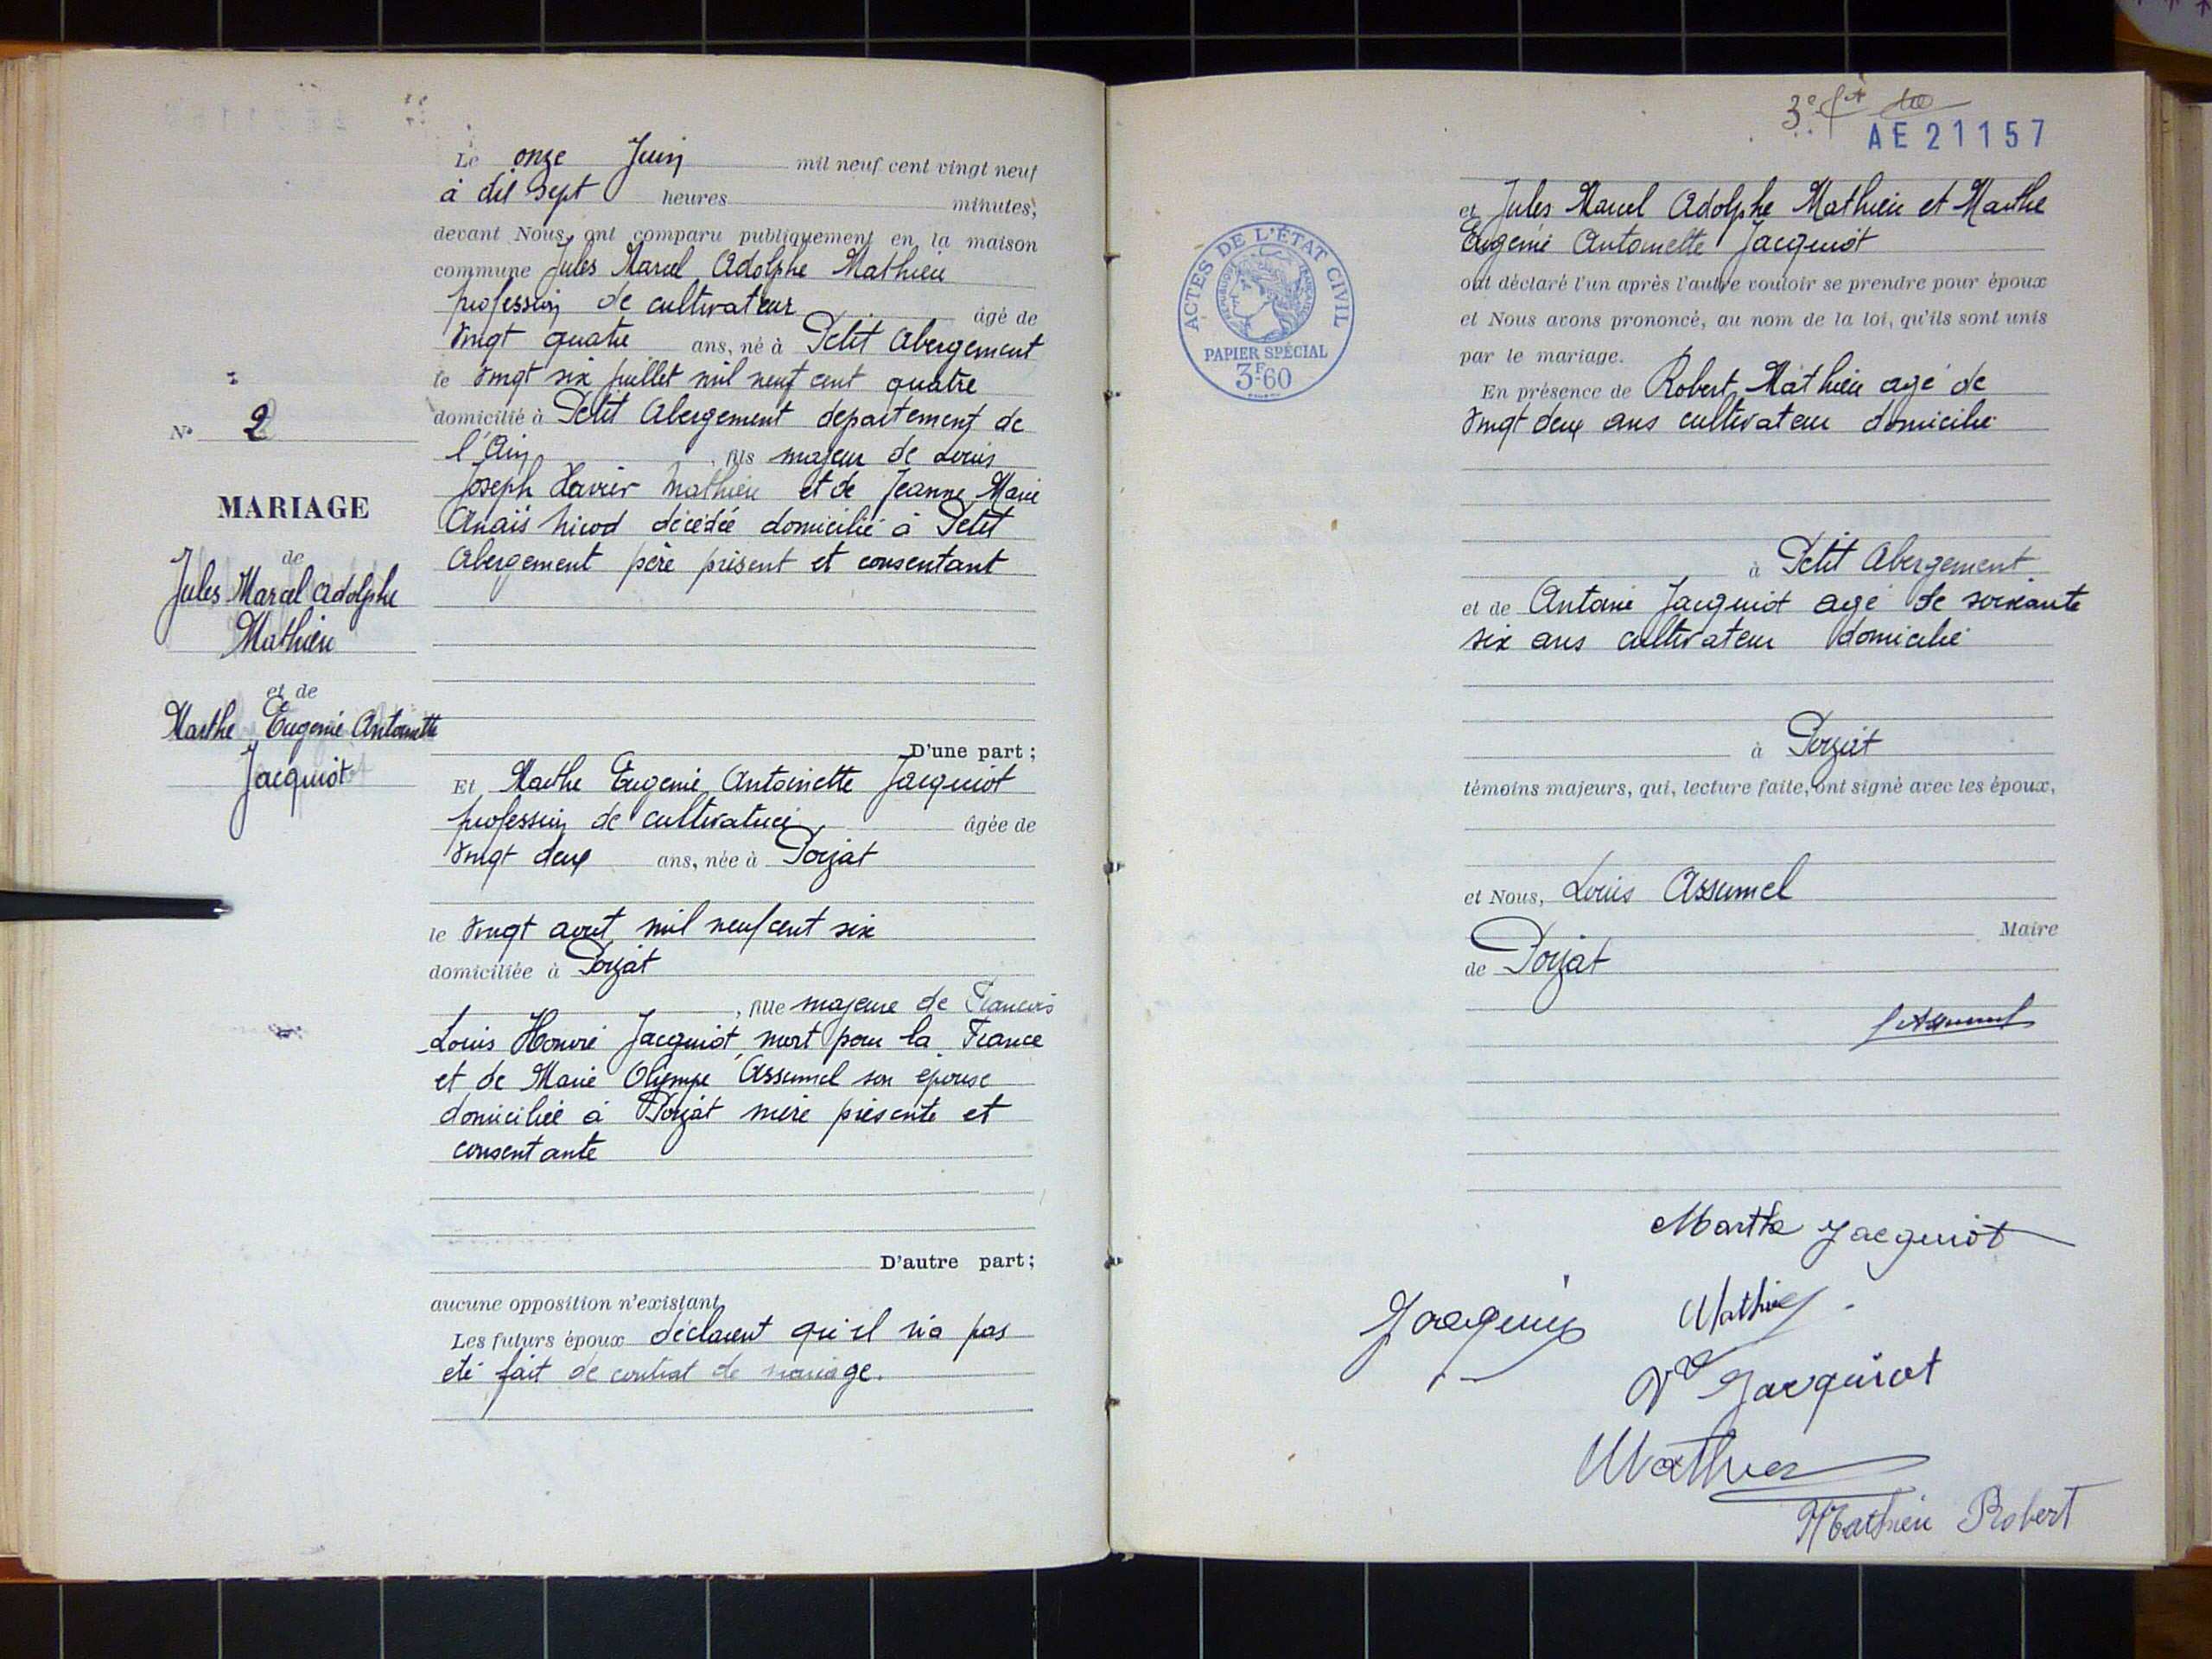 Le onze Juin mil neuf cent vingt neuf
à dil sept heures minutes,
devant Nous, ont comparu publiquement en la maison
commune Jules Marcel Adolphe Mathieu
profession de cultivateur âgé de
vingt quatre ans, né à Petit Abergement
le vingt six juillet mil neuf cent quatre
domicilié à Petit Abergement departement de
l'Ain, fils majeur de Louis
Joseph Xavier Mathieu et de Jeanne Marie
Anaïs Nicod décédée domicilié à Petit
Abergement père présent et consentant
D'une part;
N° 2
MARIAGE
de
Jules Marcel Adolphe
Mathieu
et de
Marthe Eugenie Antoinette
Jacquiot
Et Marthe Eugenie Antoinette Jacquiot
profession de cultivatrice âgée de
vingt deux ans, née à Porjat
le vingt aout mil neuf cent six
domiciliée à Porjat
, fille majeure de Francois
Louis Honoré Jacquiot mort pour la France
et de Marie Olympe Assumel son épouse
domiciliée à Porjat mère présente et
consentante
D'autre part;
aucune opposition n'existant
Les futurs époux déclarent qu'il n'a pas
eté fait de contrat de mariage.
AE 21157
et Jules Marcel Adolphe Mathieu et Marthe
Eugenie Antoinette Jacquiot
ont déclaré l'un après l'autre vouloir se prendre pour époux
et Nous avons prononcé, au nom de la loi, qu'ils sont unis
par le mariage.
En présence de Robert Mathieu agé de
vingt deux ans cultivateur domicilié
à Petit Abergement
et de Antoine Jacquiot agé de soixante
six ans cultivateur domicilié
à Porjat
témoins majeurs, qui, lecture faite, ont signé avec les époux,
et Nous, Louis Assumel
Maire
de Porjat
L Assumel
ACTES DE L'ÉTAT CIVIL
RÉPUBLIQUE FRANÇAISE
PAPIER SPÉCIAL
3F60
Marthe Jacquiot
Jacquiot Mathieu
Ve Jacquiot
Mathieu
Mathieu Robert